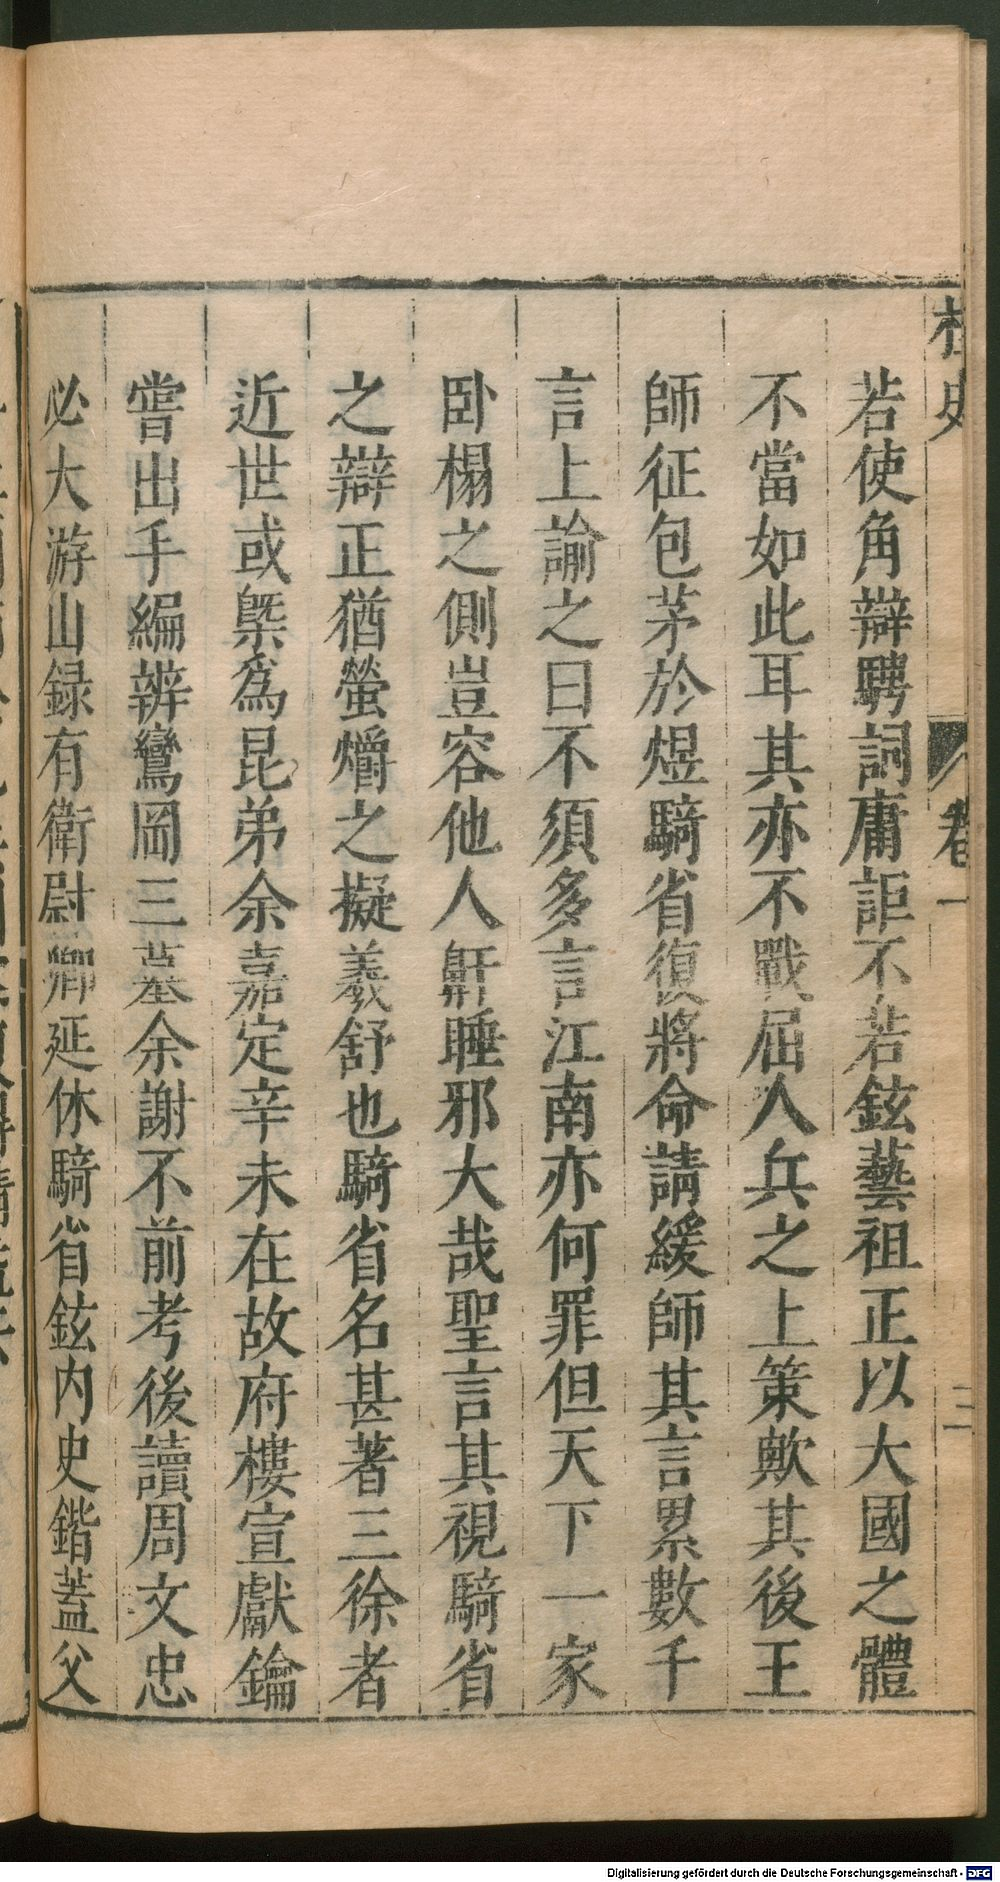 桯史
卷一
三
若使角辯騁詞庸詎不若鉉藝祖正以大國之體
不當如此耳其亦不戰屈人兵之上策歟其後王
師征包茅於煜騎省復將命請緩師其言累數千
言上諭之曰不須多言江南亦何罪但天下一家
卧榻之側豈容他人鼾睡邪大哉聖言其視騎省
之辯正猶螢爝之擬羲舒也騎省名甚著三徐者
近世或槩爲昆弟余嘉定辛未在故府樓宣獻鑰
嘗出手編辨鸞岡三墓余謝不前考後讀周文忠
必大游山録有衛尉卿延休騎省鉉内史鍇蓋父
Digitalisierung gefördert durch die Deutsche Forschungsgemeinschaft - DFG